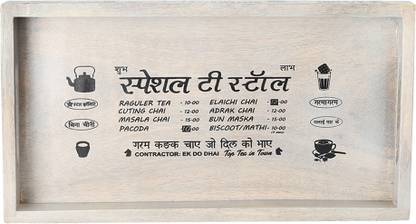 शुभ लाभ
स्पेशल टी स्टॉल
RAGULER TEA - 10-00 ELAICHI CHAI -
CUTING CHAI - 12-00 ADRAK CHAI - 12-00
बिना चीनी MASALA CHAI - 15-00 BUN MASKA - 15-00
PACODA - BISCOOT/MATHI- 10-00
गरमागरम
मलाई मार के
गरम कड़क चाए जो दिल को भाए
CONTRACTOR: EK DO DHAI Top Tea in Town